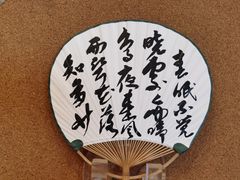 春眠不覺
曉處々聞啼
鳥夜来風
雨聲花落
知多少